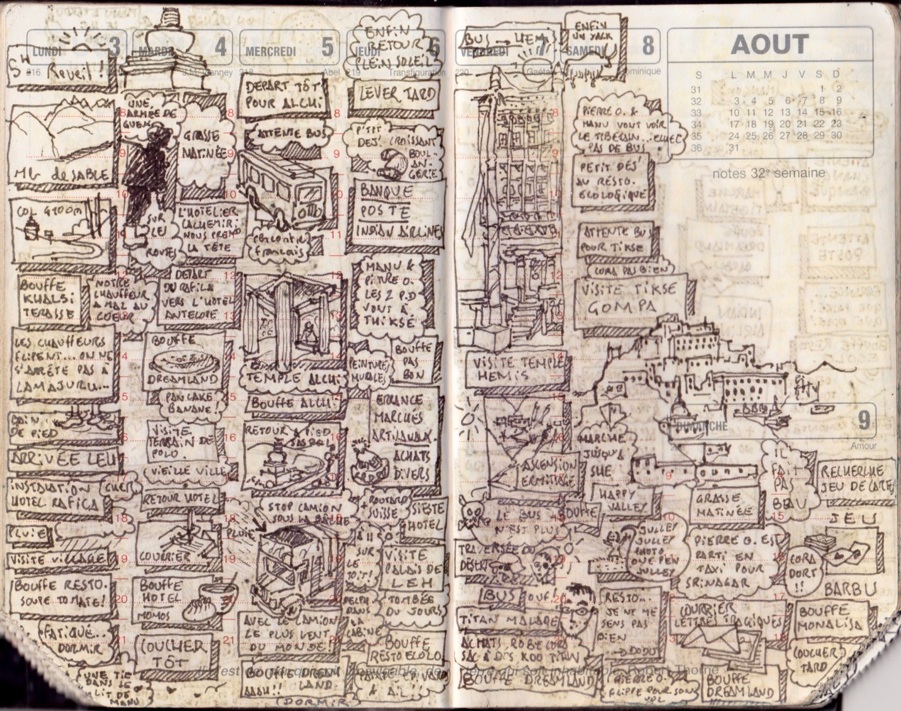 LUNDI 3
5H
Reveil!
Mts de SABLE
COL 4100m
BOUFFE
KHALSI
TERASSE
LES CHAUFFEURS
FLIPENT... ON NE
S'ARRÊTE PAS À
LAMAJURU...
BAIN
DE PIED
ARRIVÉE LEH
INSTALATION
HOTEL RAFICA
CHER
PLUIE
VISITE VILLAGE
BOUFFE RESTO.
SOUPE TOMATE!
FATIGUE...
DORMIR
UNE
DANS LE
LIT DE
MANU
MARDI 4
UNE
ARMÉE DE
SUR
LES
ROUTES
GRASSE
MATINÉE
L'HOTELIER
CACHEMIRI
NOUS PREND
LA TÊTE
NOTRE
CHAUFFEUR
A MAL AU
COEUR
DEPART
DU RAFICA
VERS L'HOTEL
ANTELOPE
BOUFFE
DREAMLAND
PANCAKE
BANANE
VISITE
TERRAIN DE
POLO.
VIEILLE VILLE
RETOUR HOTEL
COURRIER
BOUFFE
HOTEL
MOMOS
COUCHER
TÔT
MERCREDI 5
DEPART TÔT
POUR ALCHI
ATTENTE BUS
rencontre
français
TEMPLE ALCHI
BOUFFE ALCHI
RETOUR A PIED
STOP CAMION
SOUS LA BÂCHE
PLUIE
AVEC LE CAMION
LE PLUS LENT
DU MONDE!
BOUFFE DREAM
LAND.
(DORMIR)
JEUDI 6
ENFIN
RETOUR
PLEIN SOLEIL
LEVER TARD
P'TIT
DEJ. CROISSANT
BOUL-
AN-
GERIE
BANQUE
POSTE
INDIAN AIRLINES
MANU &
PIERRE O.
LES 2 P.D
VONT À
THIKSÉ
PEINTURE
MURALE
BOUFFE
PAS
BON
ERRANCE
MARCHÉS
ARTISANAUX.
ACHATS
DIVERS
ROUTARD
SUISSE
SIESTE
HOTEL
SUR
LE
TOIT!
VISITE
PALAIS DE
LEH
DANS
LA
CABINE
TOMBÉE
DU JOUR
BOUFFE
RESTO ECOLO
VENDREDI 7
BUS → HEMIS
VISITE TEMPLE
HEMIS
ASCENSION
ERMITAGE
LE BUS
N'EST PLUS
TRAVERSÉE DU
DÉSERT
BUS OUF!
TITAN MALADE
ACHATS, ROBE
BOUFFE DREAMLAND
SAMEDI 8
ENFIN
UN YACK
PIERRE O. &
MANU VONT VOIR
LE TIBETAIN
PAS DE BUS
PETIT DÉJ'
AU RESTO.
ÉCOLOGIQUE
ATTENTE BUS
POUR TIKSE
CORA PAS BIEN
VISITE TIKSE
GOMPA
MARCHE
JUSQU'À
SHE
BOUFFE
HAPPY
VALLEY
JULLEY
JULLEY
PHOTO
ONE PEN
JULLEY
RESTO...
JE NE ME
SENS PAS
BIEN
→ DODO
PIERRE O.
FLIPPE POUR SON
VOL
AOUT
S L M M J V S D
31 1 2
32 3 4 5 6 7 8 9
33 10 11 12 13 14 15 16
34 17 18 19 20 21 22 23
35 24 25 26 27 28 29 30
36 31
notes 32e semaine
DIMANCHE 9
Amour
GRASSE
MATINÉE
IL
FAIT
PAS
BEAU
RECHERCHE
JEU DE CARTE
JEU
PIERRE O. EST
PARTI EN
TAXI POUR
SRINAGAR
CORA
DORT
BARBU
COURRIER
LETTRES TRAGIQUES
BOUFFE
MONALISA
COUCHER
TARD
BOUFFE
DREAMLAND